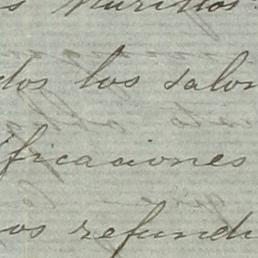 s Murillos
dos los salon
ificaciones
os refundi